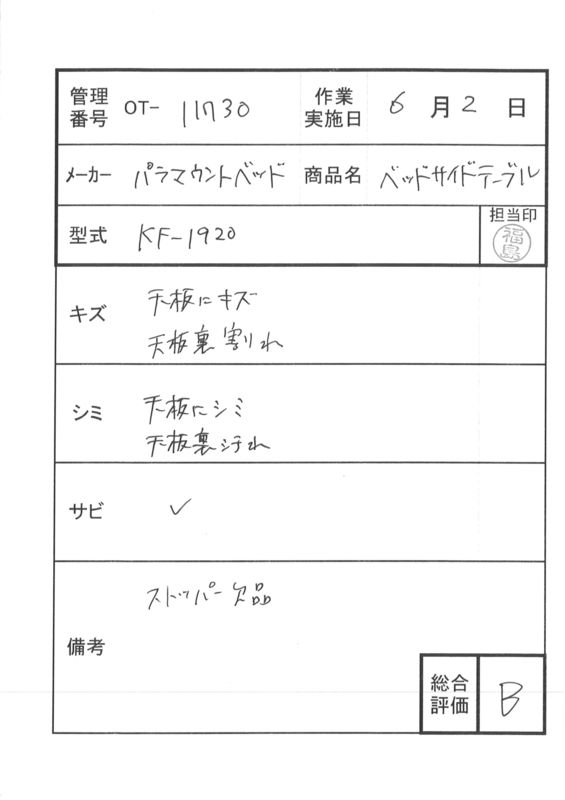 管理番号 OT- 11730 作業実施日 6月2日
メーカー パラマウントベッド 商品名 ベッドサイドテーブル
型式 KF-1920 担当印 福島
キズ 天板にキズ
天板裏割れ
シミ 天板にシミ
天板裏汚れ
サビ ✓
備考 ストッパー欠品
総合評価 B